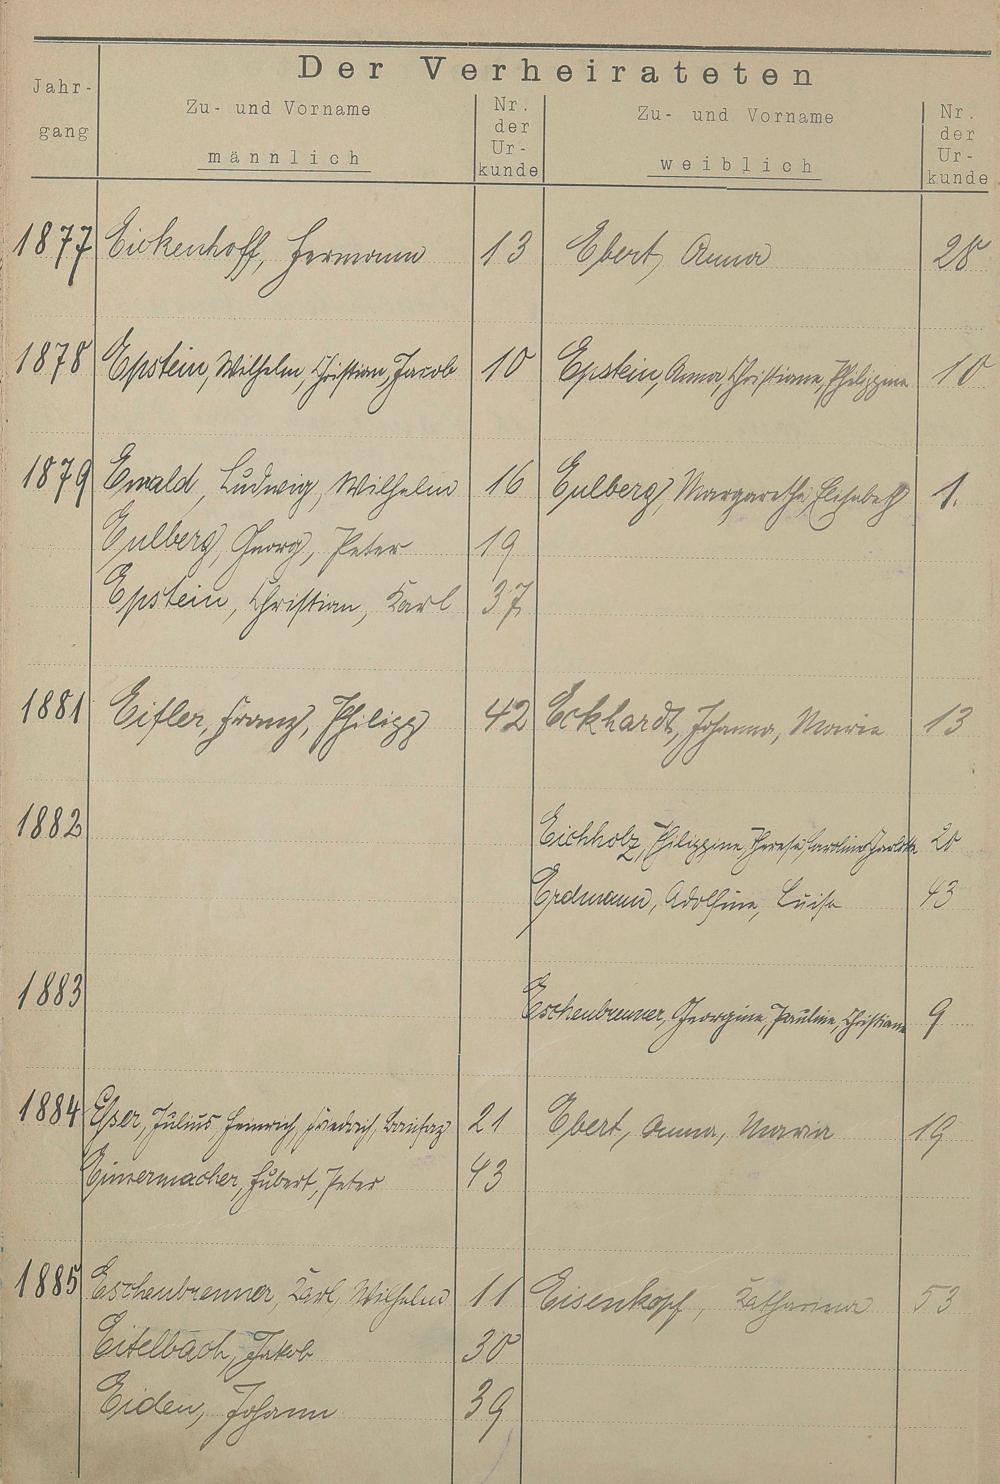 Der Verheirateten
Jahrgang Zu- und Vorname männlich Nr. der Urkunde Zu- und Vorname weiblich Nr. der Urkunde
1877 Eickenhoff, Hermann 13 Ebert, Anna 28
1878 Epstein, Wilhelm, Christian, Jacob 10 Epstein, Anna, Christiane, Philippine 10
1879 Ewald, Ludwig, Wilhelm 16 Eulberg, Margarethe, Elisabeth 1.
Eulberg, Georg, Peter 19
Epstein, Christian, Karl 37
1881 Eifler, Franz, Philipp 42 Eckhardt, Johanna, Maria 13
1882 Eichholz, Philippine, Therese, Caroline 20
Erdmann, Adolfine, Luise 43
1883 Eschenbrenner, Georgine, Pauline, Christiane 9
1884 Esser, Julius Heinrich, Friedrich, Bonifaz 21 Ebert, Anna, Maria 19
Eimermacher, Hubert, Peter 43
1885 Eschenbrenner, Karl Wilhelm 11 Eisenkopf, Katharina 53
Eitelbach, Jakob 30
Eiden, Johann 39